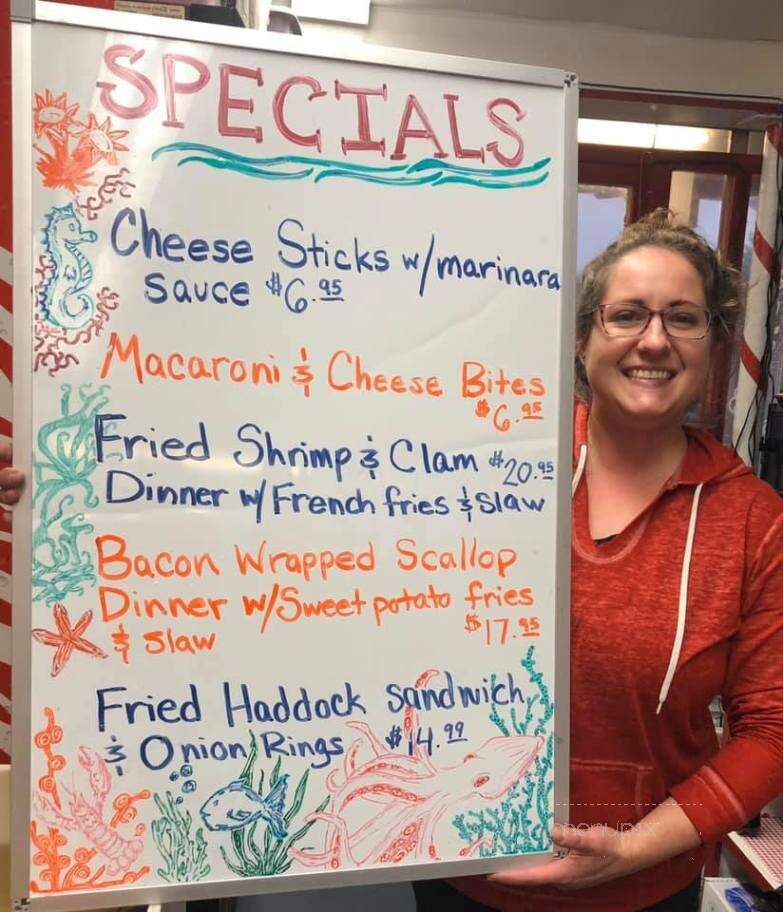 SPECIALS
Cheese Sticks w/marinara
sauce $6.95
Macaroni & Cheese Bites
$6.95
Fried Shrimp & Clam $20.95
Dinner w/French fries & slaw
Bacon Wrapped Scallop
Dinner w/Sweet potato fries
& slaw $17.95
Fried Haddock sandwich
& Onion Rings $14.99